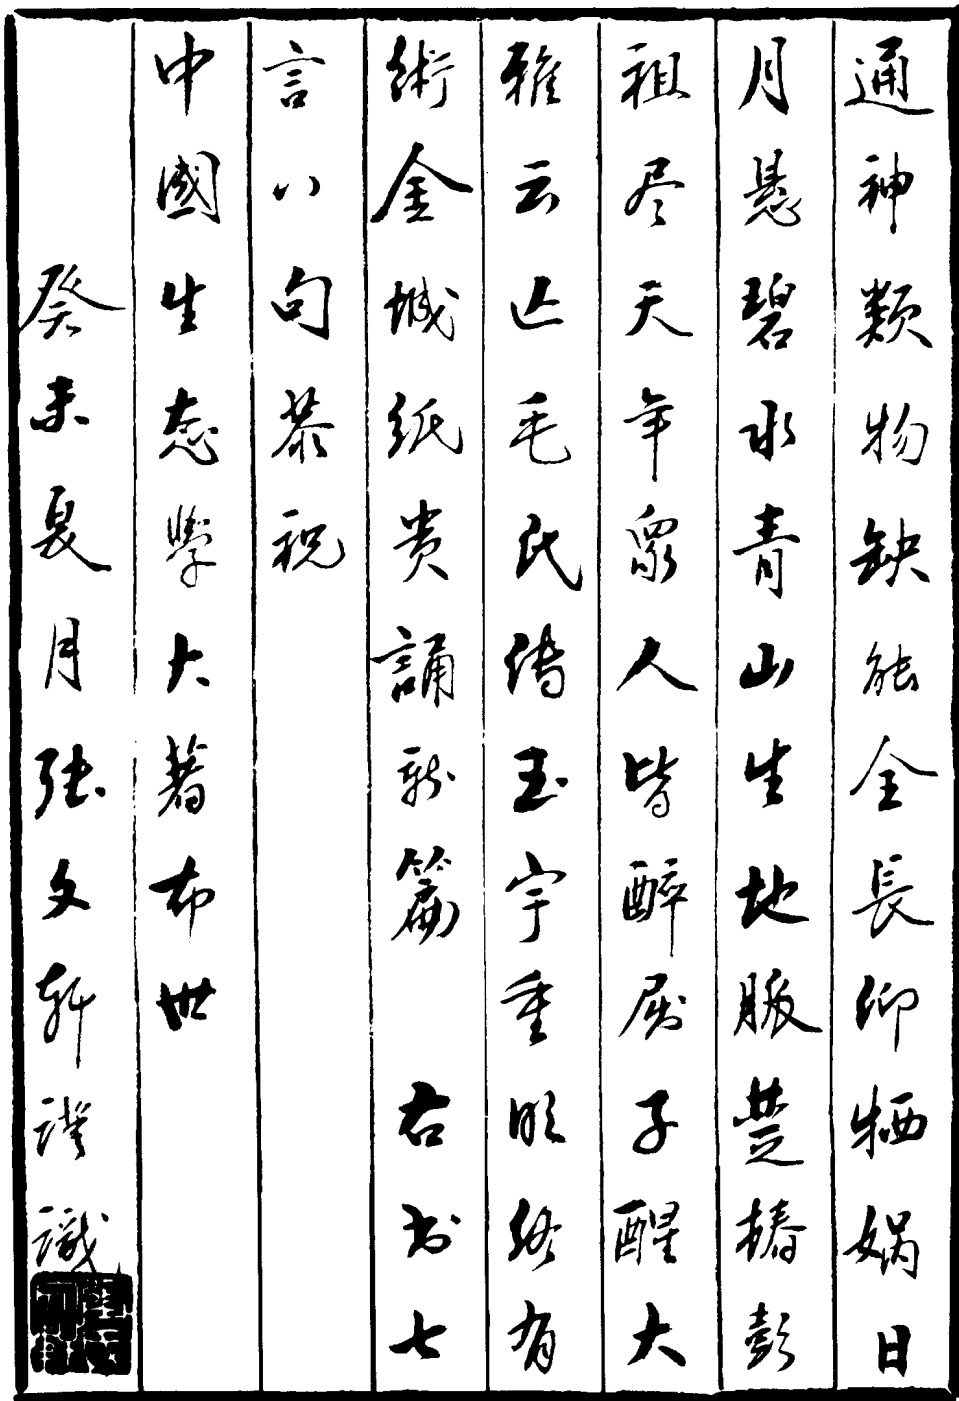 通神類物缺能全長仰牺娲日
月悬碧水青山生地脈楚椿彭
祖尽天年衆人皆醉屈子醒大
雅云亡毛氏传玉宇重明终有
術金城纸贵誦新篇 右书七
言八句恭祝
中國生态學大著布世
癸未夏月张文轩谨識